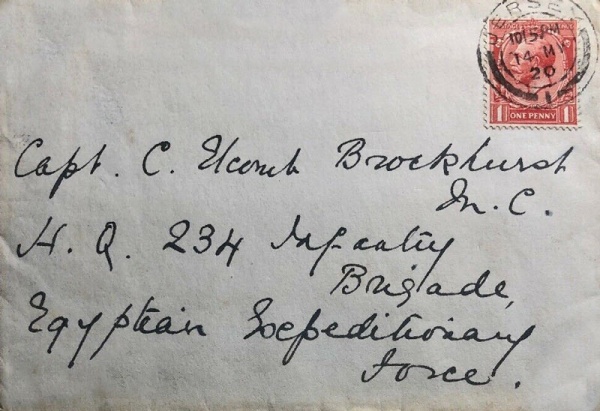 JERSEY
10.15PM
14 MY
20
1 ONE PENNY 1
Capt. C. Elcomb Brockhurst
M.C.
H.Q. 234 Infantry
Brigade,
Egyptian Expeditionary
Force.